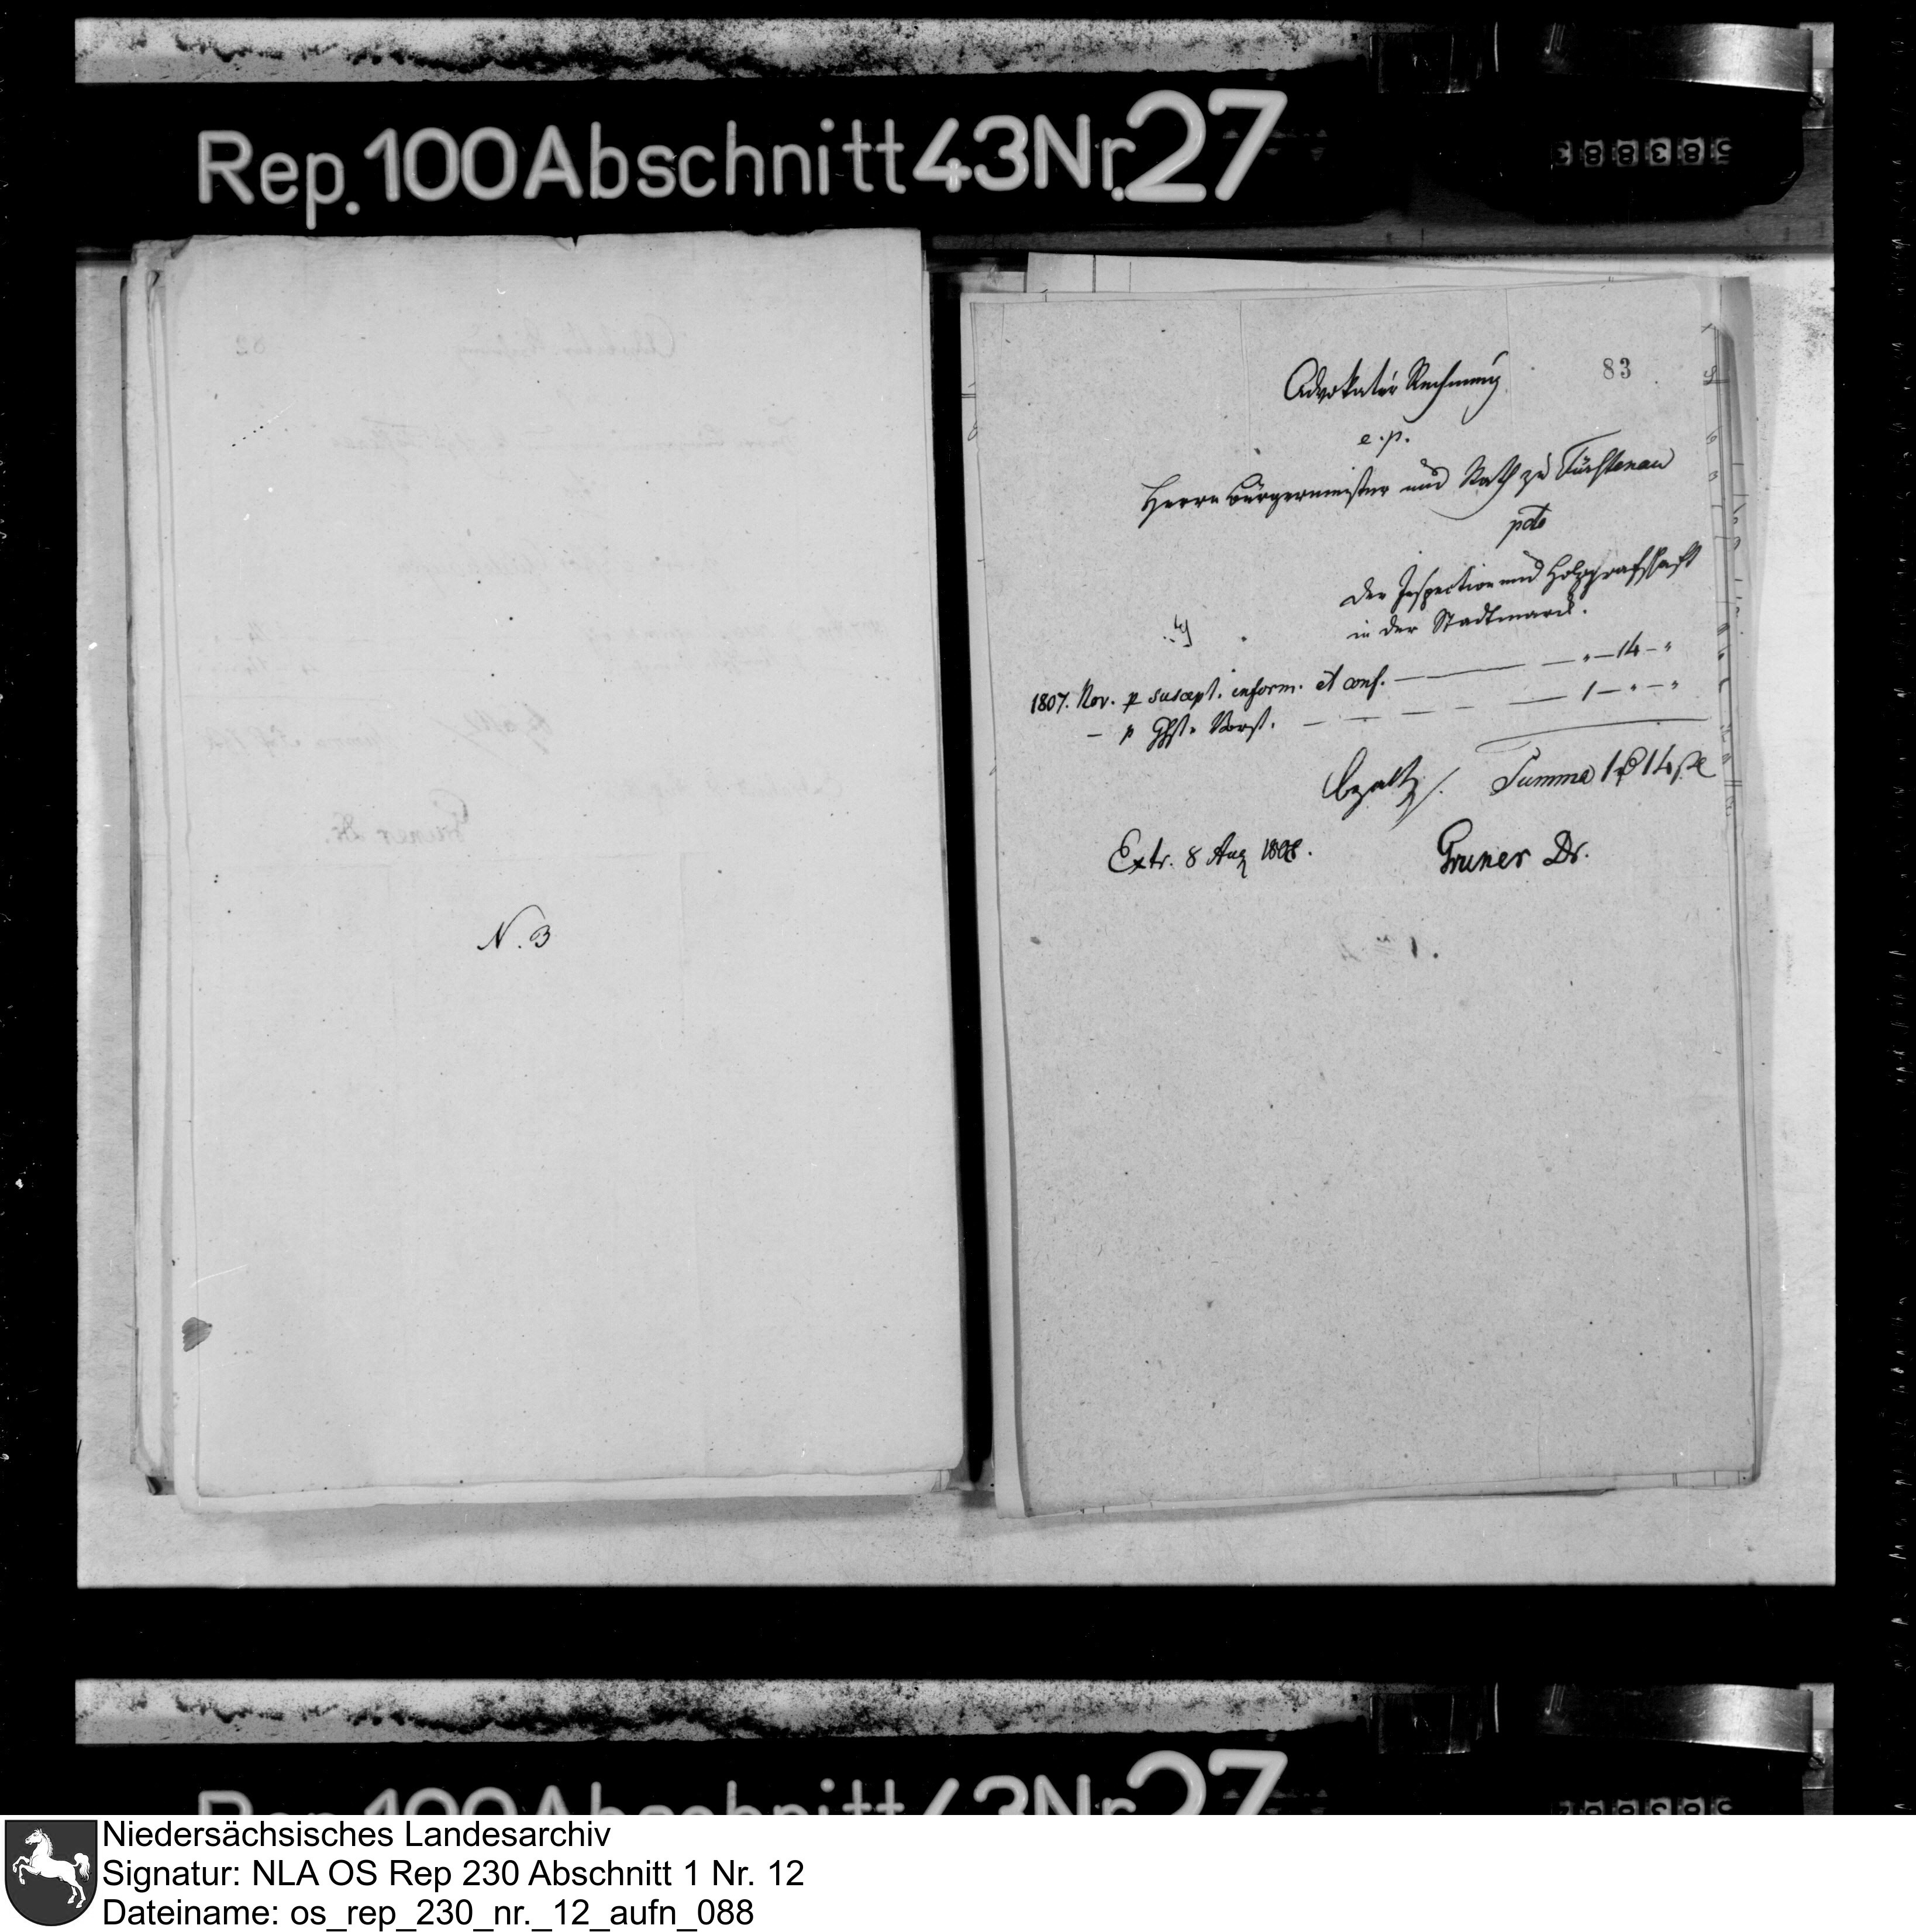 Rep. 100 Abschnitt 43 Nr. 27
N. 3
83
Advokatur Rechnung
e. p.
Herrn Bürgermeister und Rath zu Fürstenau
pcto
der Inspection und Holzgrafschaft
in der Stadtmark.
1807. Nov. p suscept. inform. et conf. — — „ — 14 — „
— p Vorst. — — — — 1 — „ — „
bezalt Summa 1 14
Extr. 8 Aug 1808. Gruner Dr.
Rep. 100 Abschnitt 43 Nr. 27
Niedersächsisches Landesarchiv
Signatur: NLA OS Rep 230 Abschnitt 1 Nr. 12
Dateiname: os_rep_230_nr._12_aufn_088